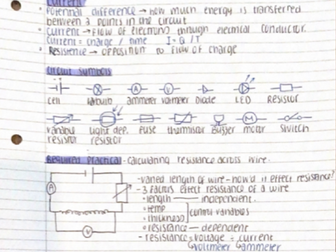 Current
• Potential difference → how much energy is transferred
between 2 points in the circuit
• Current → flow of electrons through electrical conductor.
Current = charge / time I = Q / T
• Resistance → opposition to flow of charge
Circuit symbols
A V
cell ammeter voltmeter diode LED resistor
M
variable light dep. fuse thermistor buzzer motor switch
resistor resistor
Required Practical - calculating resistance across wire.
- varied length of wire - how does it effect resistance?
- 3 factors effect resistance of a wire
A
• length — independent
• temp
• thickness
control variables
• resistance — dependent
- resistance = voltage ÷ current
V
voltmeter ammeter